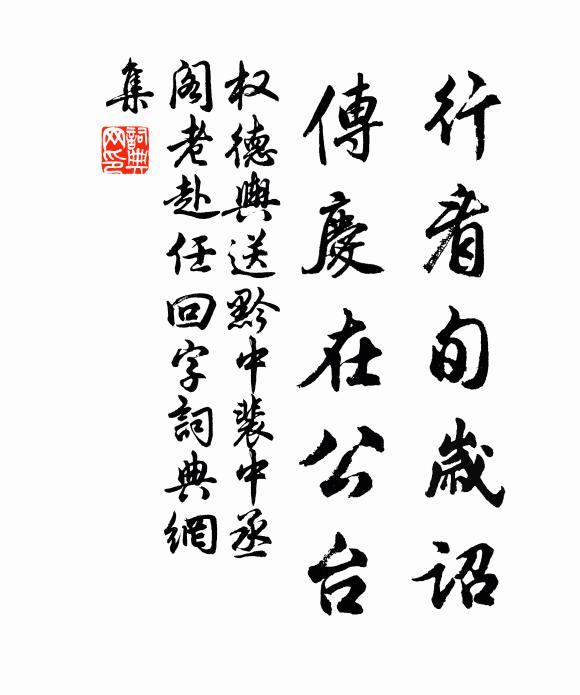 行看旬歲詔
傳慶在公台
权德輿送黔中裴中丞
阁老赴任回字詞典網
集
詞典
网印